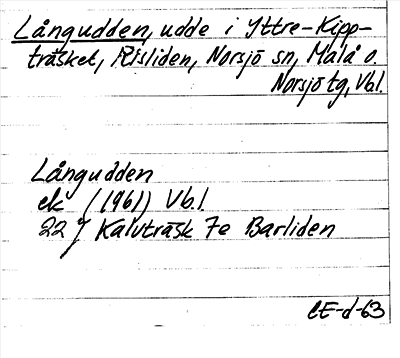 Långudden, udde i Yttre-Kipp-
träsket, Risliden, Norsjö sn, Malå o.
Norsjö tg, Vbl.
Långudden
ek (1961) Vb.l.
22 J Kalvträsk 7e Barliden
CE-d-63